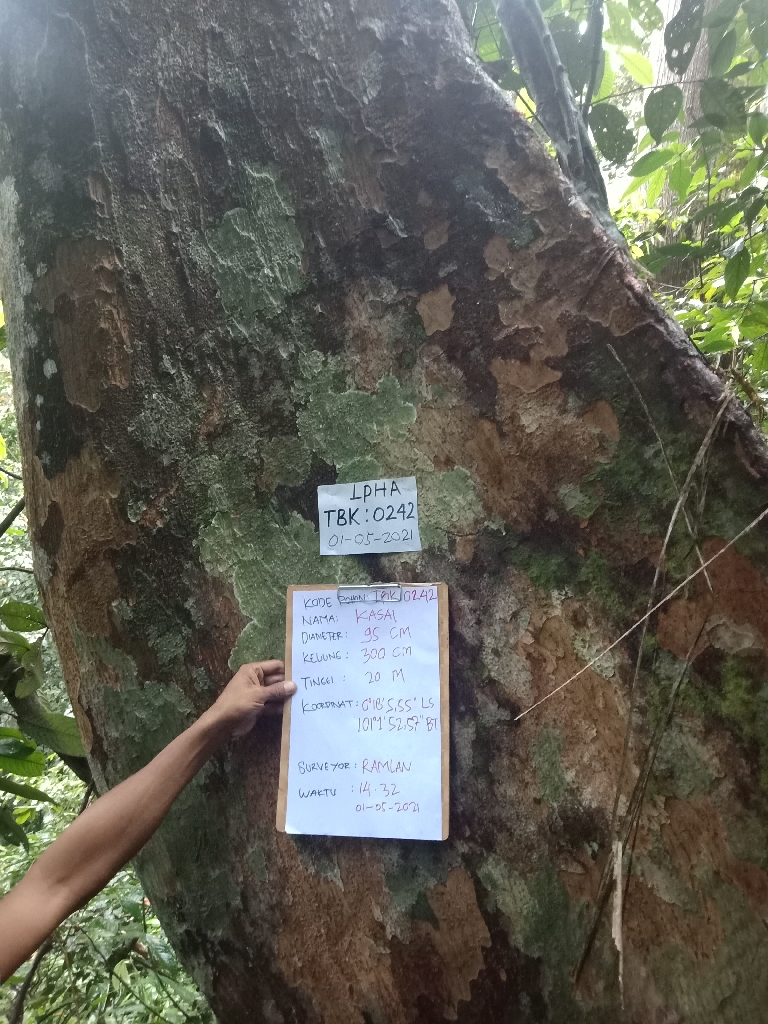 LPHA
TBK: 0242
01-05-2021
KODE POHON: TBK 0242
NAMA: KASAI
DIAMETER: 95 CM
KELILING: 300 CM
TINGGI: 20 M
KOORDINAT: 0°18'5,55" LS
101°1'52,57" BT
SURVEYOR: RAMLAN
WAKTU: 14.32
01-05-2021